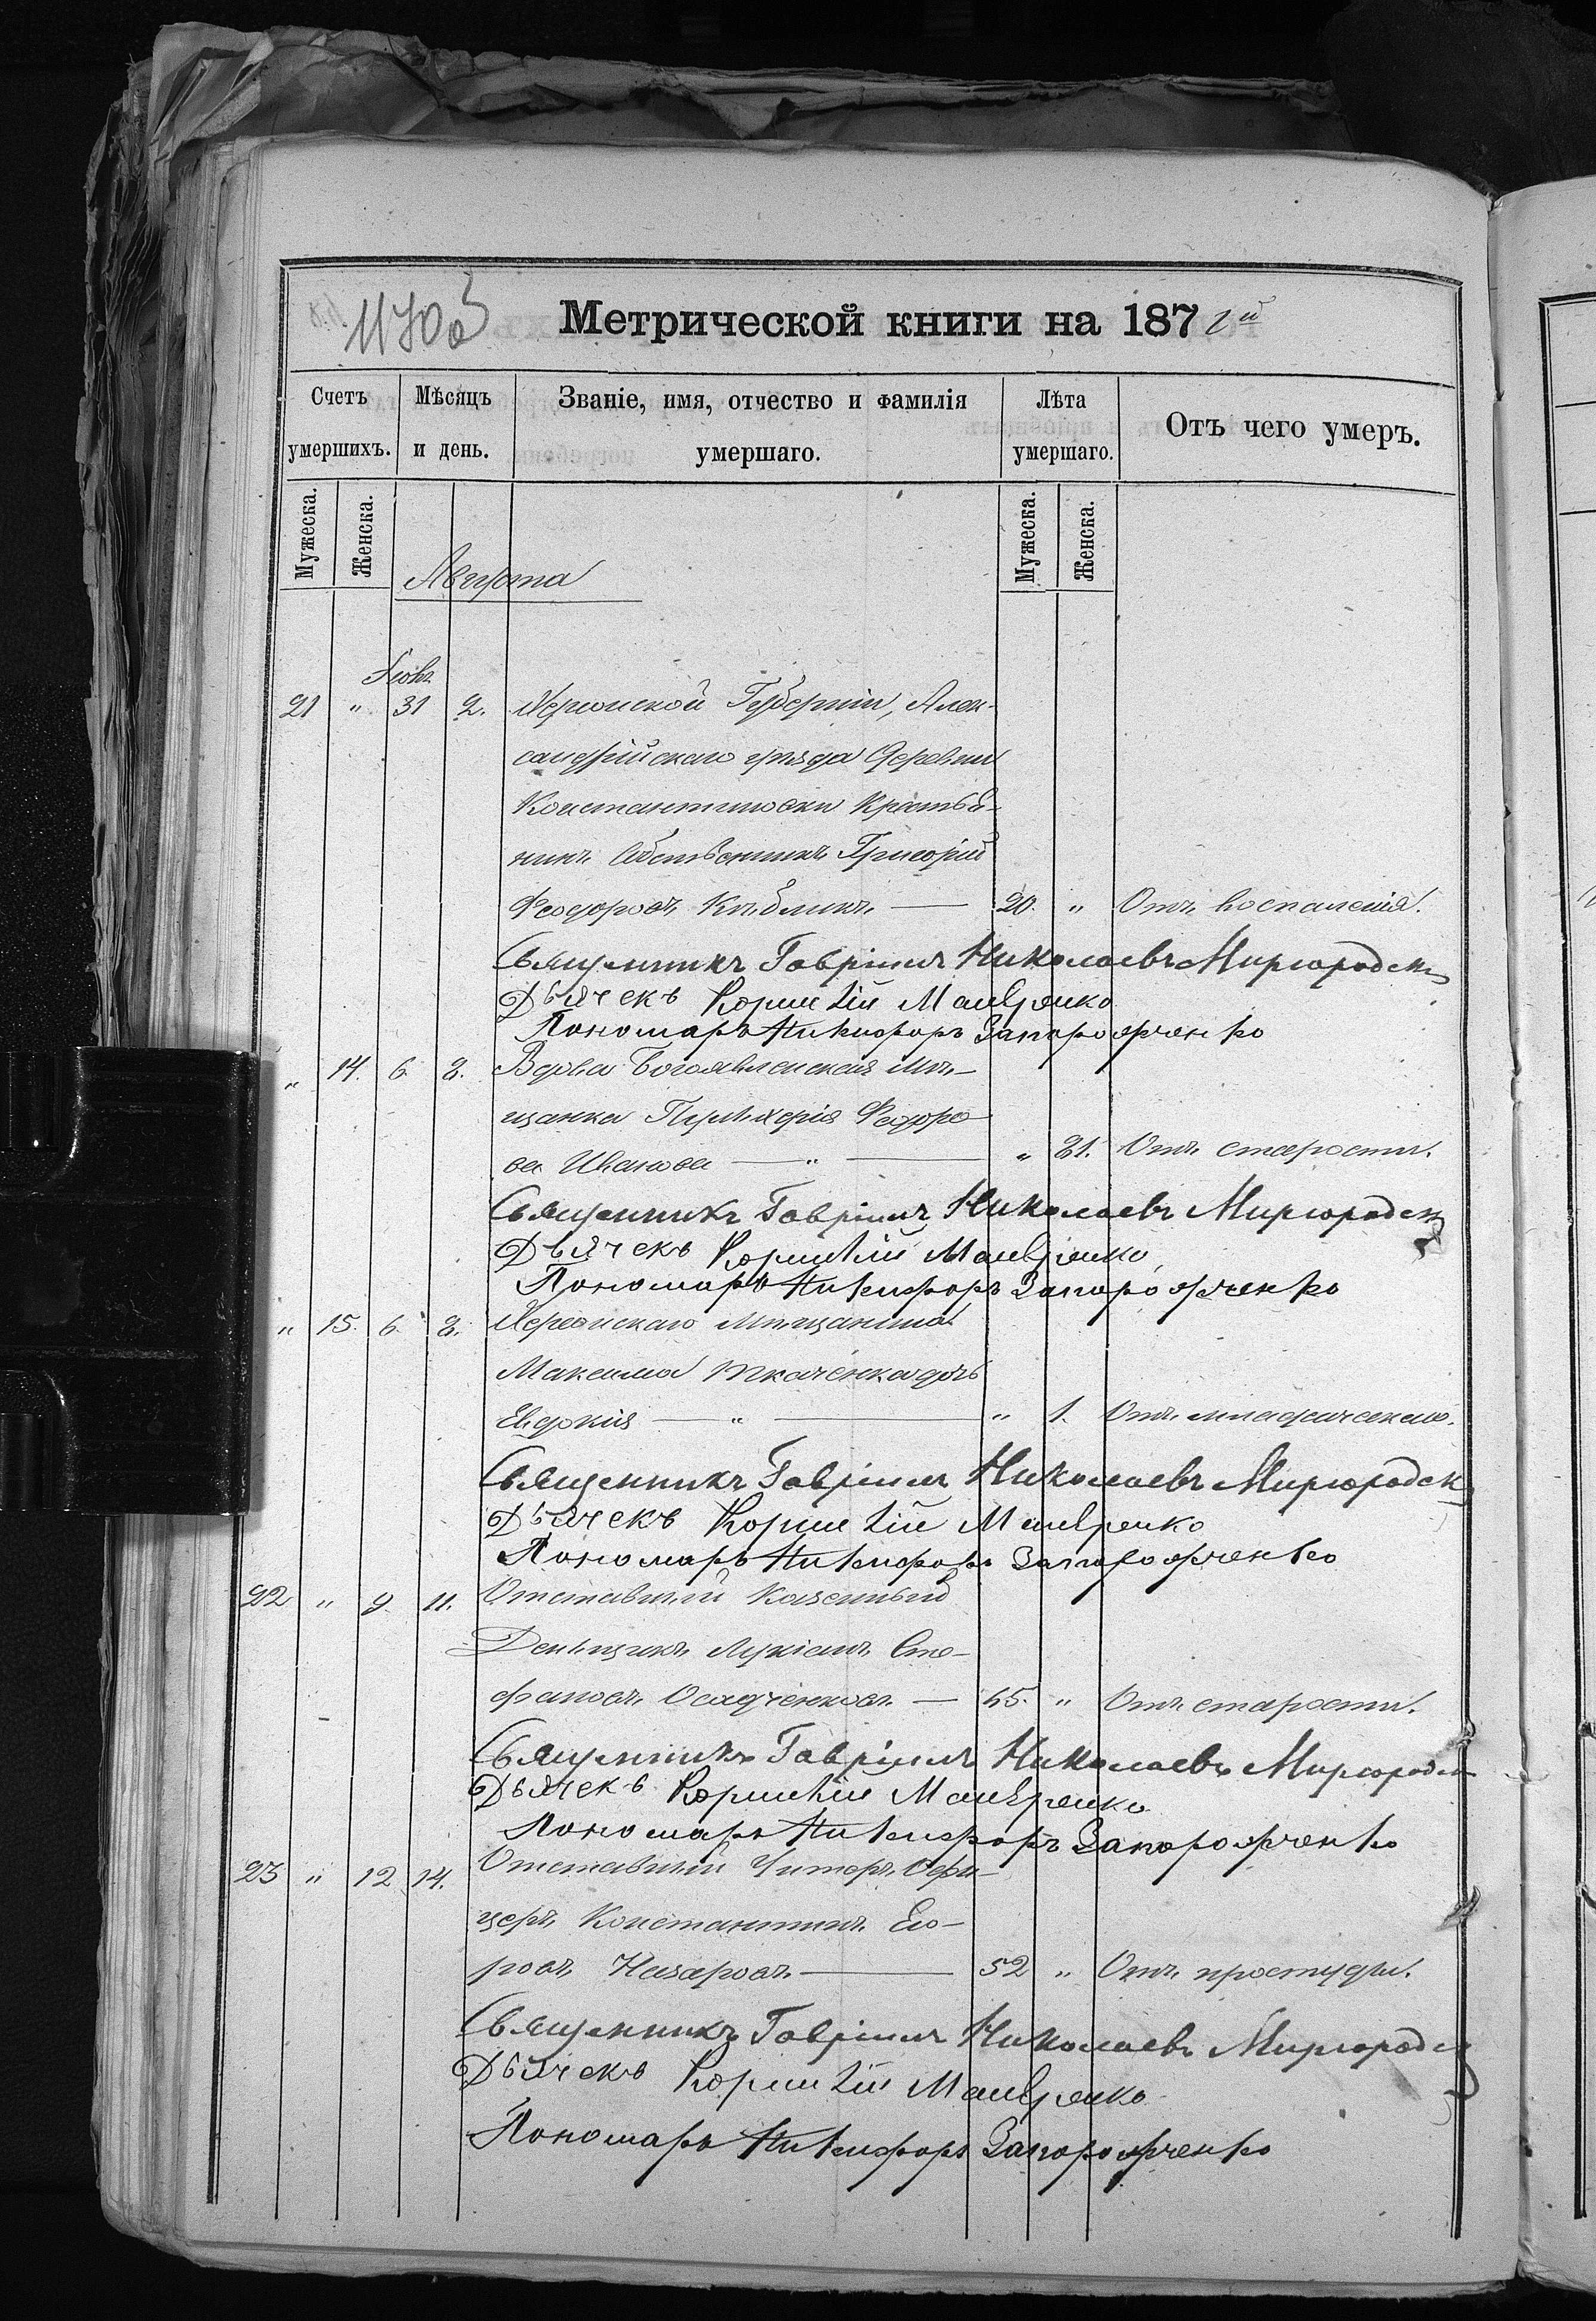 1170 об
Метрической книги на 187 2й
Счетъ умершихъ.
Мѣсяцъ и день.
Званіе, имя, отчество и фамилія умершаго.
Лѣта умершаго.
Отъ чего умеръ.
Мужеска.
Женска.
Мужеска.
Женска.
Августа
Іюль
21 " 31 2. Херсонской Губерніи, Алек-
сандрійскаго уѣзда Деревни
Константиновки Крестья-
нинъ Собственникъ Григорій
Феодоровъ — 20. " Отъ воспаленія.
Священникъ Гавріилъ Николаевъ Миргородск
Дьячекъ Корнилій Мавренко
Пономарь Никифоръ Запорожченко
" 14. 6. 8. Вдова Богоявленская Мѣ-
щанка Пульхерія Федоро-
ва Иванова — " — " 81. Отъ старости.
Священникъ Гавріилъ Николаевъ Миргородск
Дьячекъ Корнилій Мавренко
Пономарь Никифоръ Запорожченко
" 15. 6. 8. Херсонскаго Мѣщанина
Максима Ткаченка дочь
Евдокія — " — " 1. Отъ младенческаго.
Священникъ Гавріилъ Николаевъ Миргородск
Дьячекъ Корнилій Мавренко
Пономарь Никифоръ Запорожченко
22 " 9. 11. Отставный Казенный
Деньщикъ Лукіанъ Сте-
фановъ Осадченковъ — 65. " Отъ старости.
Священникъ Гавріилъ Николаевъ Миргородск
Дьячекъ Корнилій Мавренко
Пономарь Никифоръ Запорожченко
23 " 12 14. Отставный Унтеръ Офи-
церъ Константинъ Его-
ровъ Назаровъ — 52 " Отъ простуды.
Священникъ Гавріилъ Николаевъ Миргородск
Дьячекъ Корнилій Мавренко
Пономарь Никифоръ Запорожченко